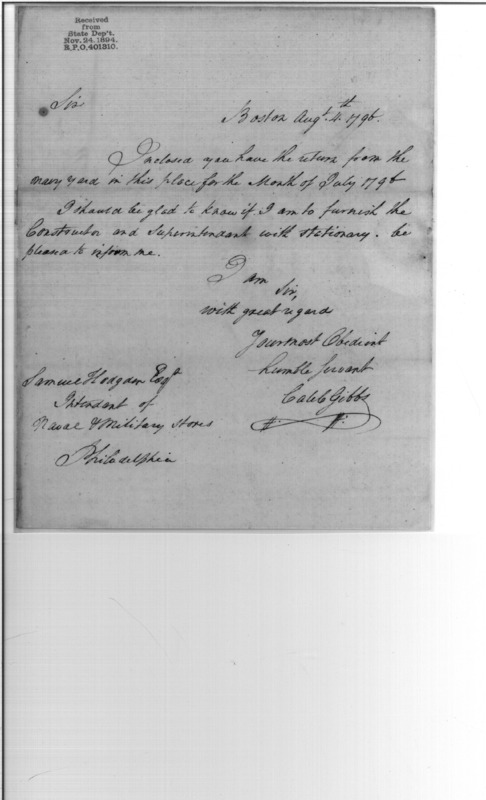 Received
from
State Dep't.
Nov. 24. 1894.
R.P.O. 401310.
Sir
Boston Augt. 4th 1796.
Inclosed you have the return from the
navy yard in this place for the Month of July 1796
I should be glad to know if I am to furnish the
Constructor and Superintendant with stationary. be
pleased to inform me.
I am
Sir,
with great regard
Your most Obedient
humble servant
Caleb Gibbs
Samuel Hodgdon Esqr
Intendant of
Naval & Military Stores
Philadelphia